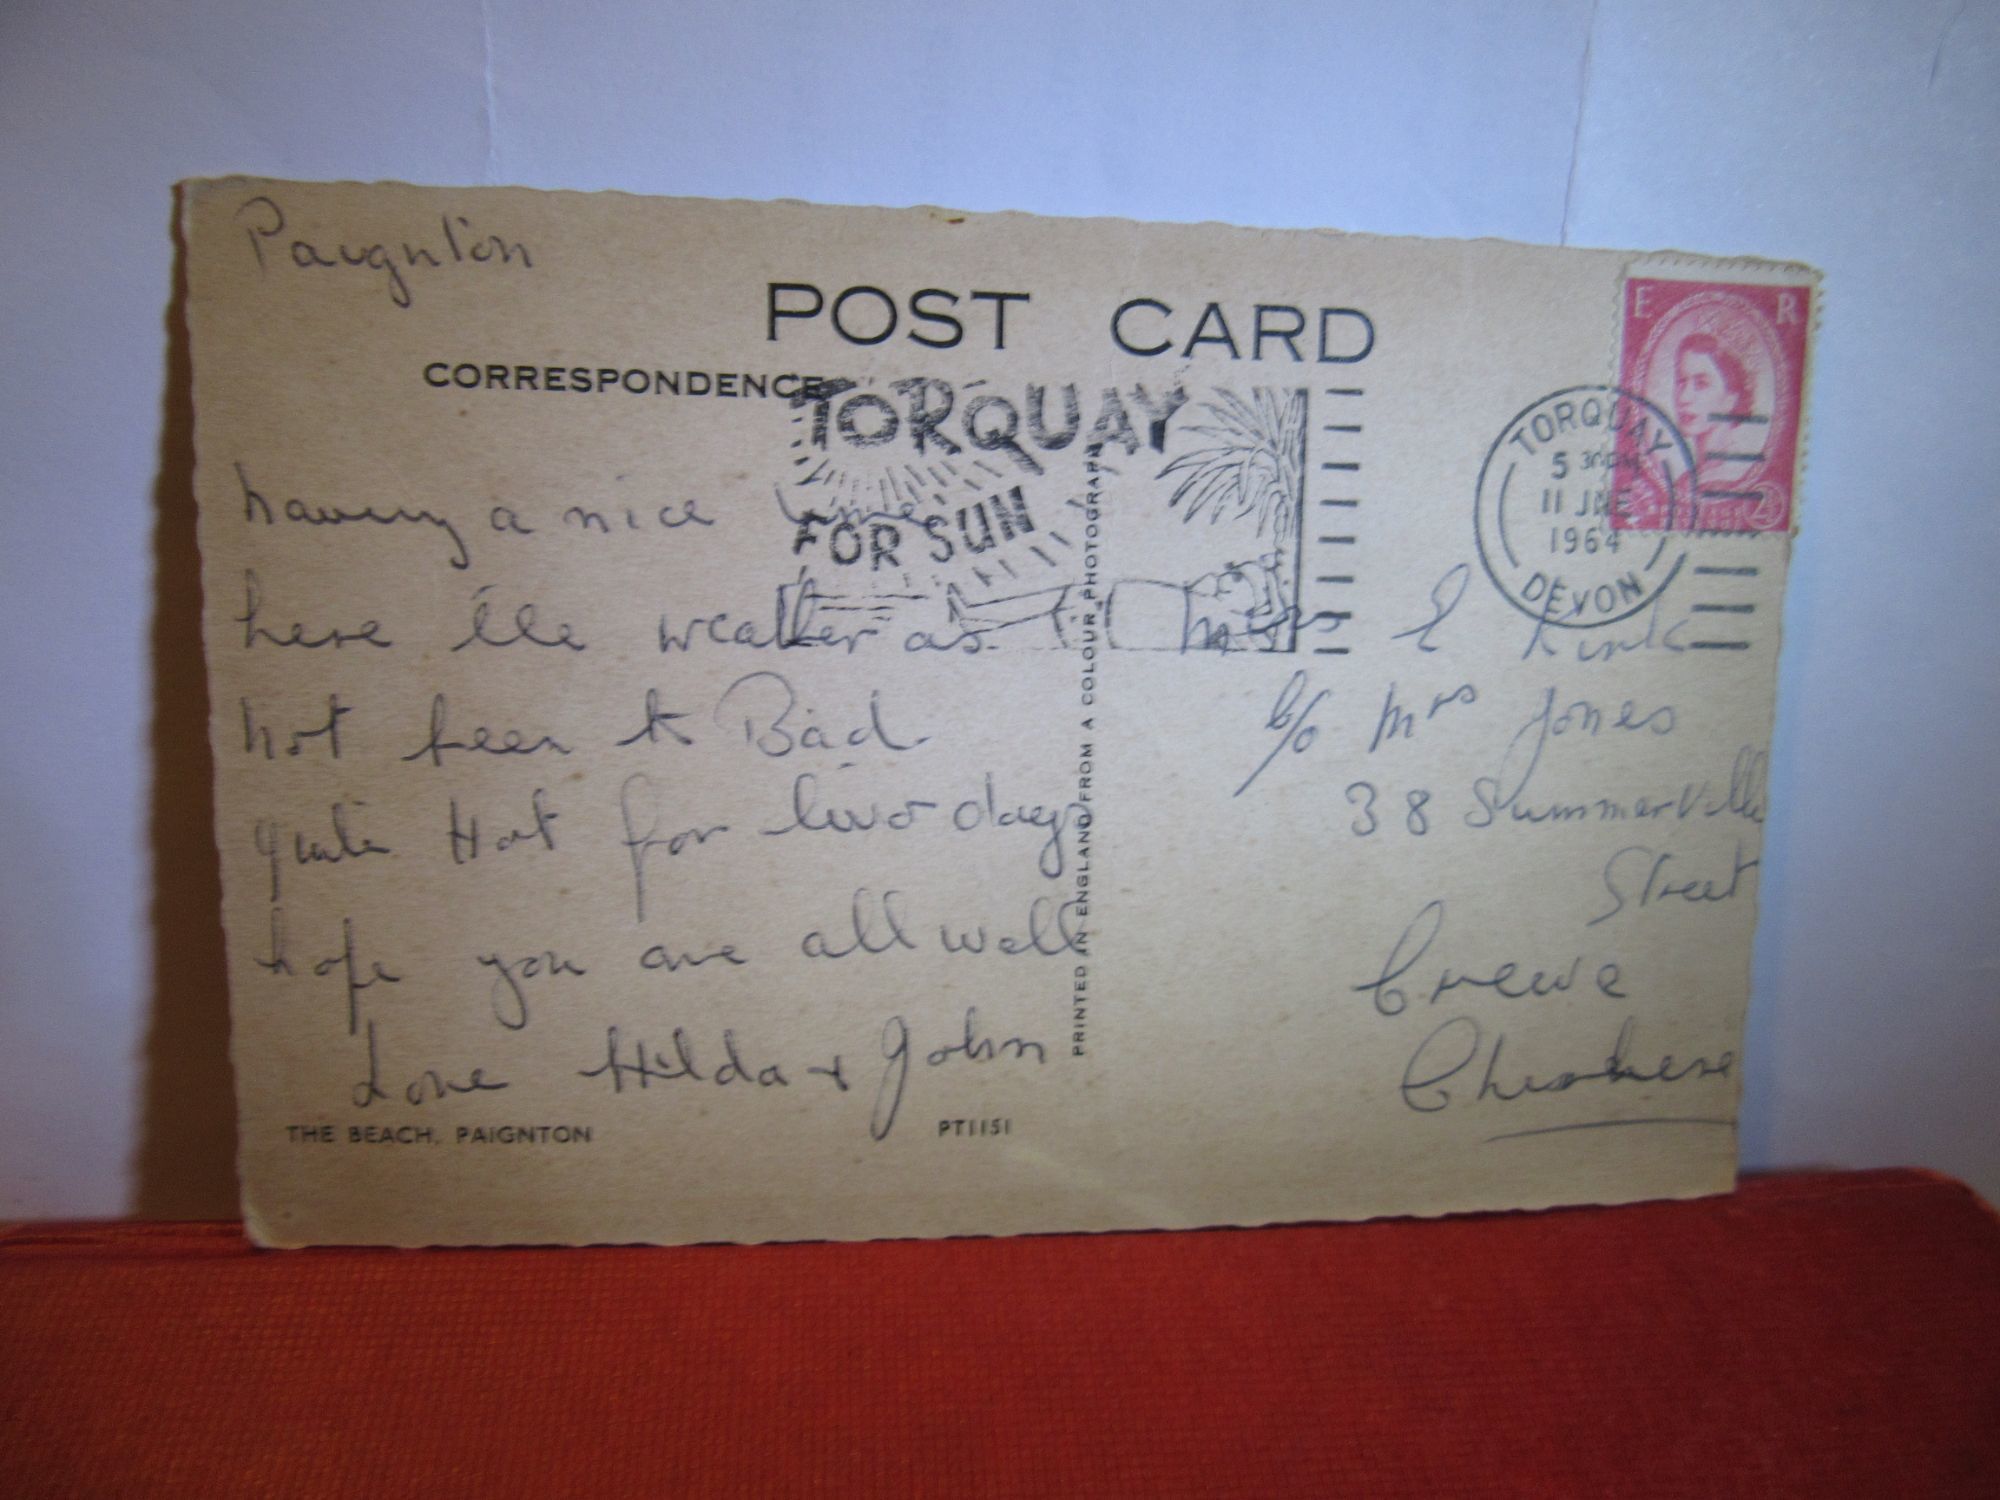 Paignton
POST CARD
CORRESPONDENCE
TORQUAY
FOR SUN
E R
2½
TORQUAY
5 30 PM
11 JNE
1964
DEVON
having a nice time
here the weather as
not been to Bad
quite Hot for two days
hope you are all well
Love Hilda + John
THE BEACH, PAIGNTON
PT1151
PRINTED IN ENGLAND FROM A COLOUR PHOTOGRAPH
E
C/o Mrs Jones
38 Summerville
Street
Crewe
Cheshere